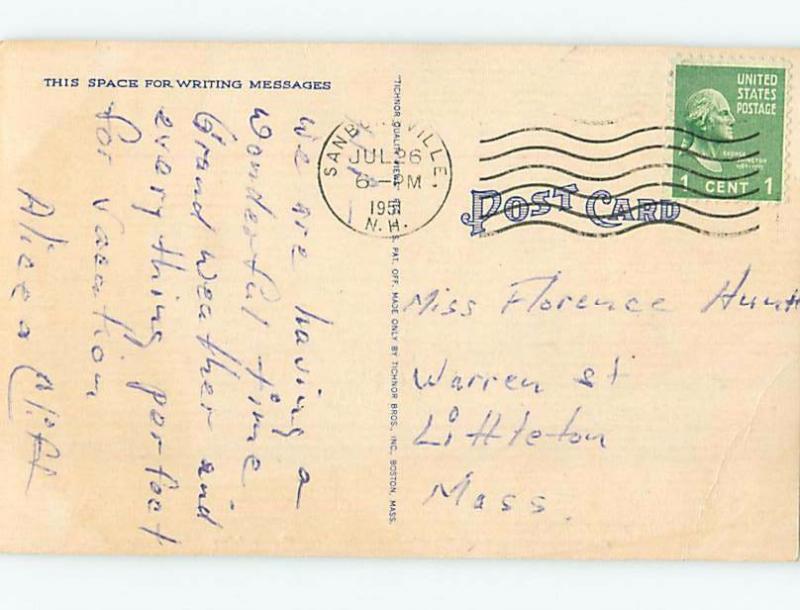 THIS SPACE FOR WRITING MESSAGES
We are having a
Wonderful time
Grand Weather and
everything perfect
for vacation
Alice & Cliff
TICHNOR QUALITY VIEWS, REG. U. S. PAT. OFF. MADE ONLY BY TICHNOR BROS., INC., BOSTON, MASS.
SANBORNVILLE
JUL 26
6 - PM
195
N.H.
UNITED
STATES
POSTAGE
GEORGE
WASHINGTON
1 CENT 1
POST CARD
Miss Florence Hunt
Warren st
Littleton
Mass.